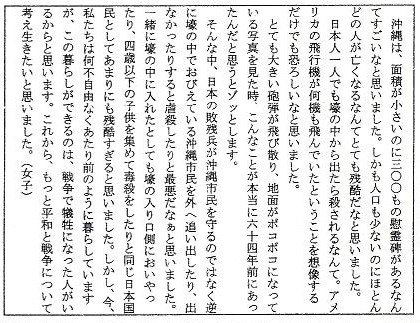 沖縄は、面積が小さいのに三〇〇もの慰霊碑があるなん
てすごいなと思いました。しかも人口も少ないのにほとん
どの人が亡くなるなんてとても残酷だなと思いました。
　日本人一人でも壕の中から出たら殺されるなんて。アメ
リカの飛行機が何機も飛んでいたということを想像する
だけでも恐ろしいなと思いました。
　とても大きい砲弾が飛び散り、地面がボコボコになって
いる写真を見た時、こんなことが本当に六十四年前にあっ
たんだと思うとゾッとします。
　そんな中、日本の敗残兵が沖縄市民を守るのではなく逆
に壕の中でおびえている沖縄市民を外へ追い出したり、出
なかったりすると虐殺したりと最悪だなぁと思いました。
一緒に壕の中に入れたとしても壕の入り口側においやっ
たり、四歳以下の子供を集めて毒殺をしたりと同じ日本国
民としてあまりにも残酷すぎると思いました。しかし、今、
私たちは何不自由なくあたり前のように暮らしています
が、この暮らしができるのは、戦争で犠牲になった人がい
るからと思います。これから、もっと平和と戦争について
考え生きたいと思いました。（女子）